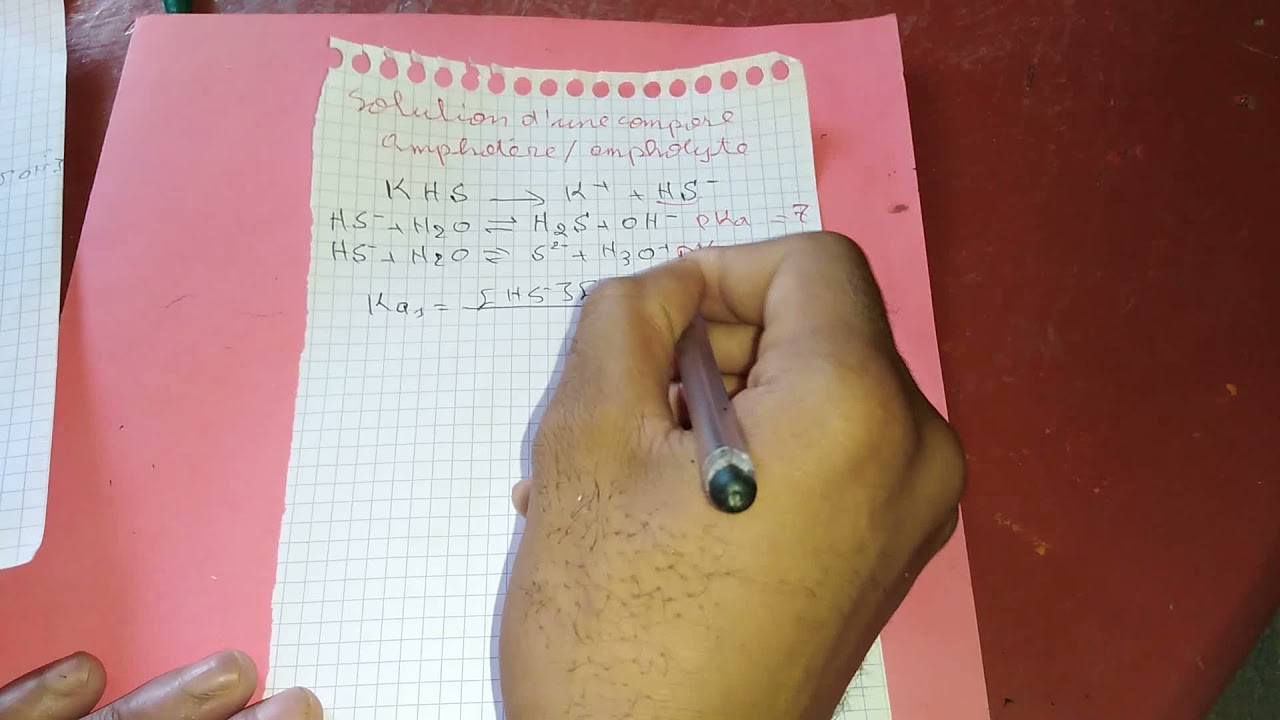 Solution d'une compose
Amphotère / ampholyte
KHS → K⁺ + HS⁻
HS⁻ + H₂O ⇌ H₂S + OH⁻ pKa = 7
HS⁻ + H₂O ⇌ S²⁻ + H₃O⁺
Ka₁ = [HS⁻][